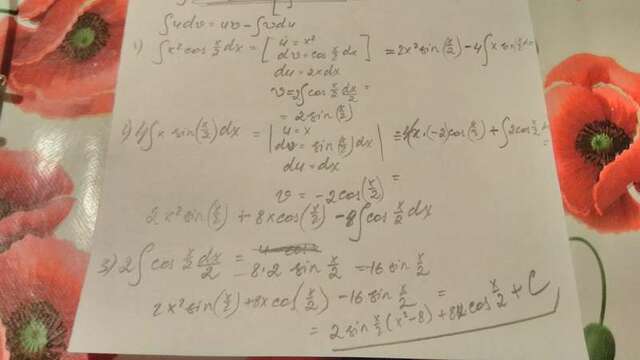 ∫udv = uv - ∫vdu
1) ∫x² cos x/2 dx = [ u = x² dv = cos x/2 dx ] = 2x² sin(x/2) - 4∫x sin x/2 dx
du = 2xdx
v = 2∫cos x/2 dx/2 =
= 2 sin(x/2)
2) 4∫x sin(x/2)dx = | u = x dv = sin(x/2)dx | = 4(x·(-2)cos(x/2) + ∫2cos x/2
du = dx
v = -2cos(x/2) =
2x² sin(x/2) + 8x cos(x/2) - 8∫cos x/2 dx
3) 2∫cos x/2 dx/2 =
8·2 sin x/2 = 16 sin x/2
2x² sin(x/2) + 8x cos(x/2) - 16 sin x/2 =
= 2 sin x/2 (x² - 8) + 8x cos x/2 + C